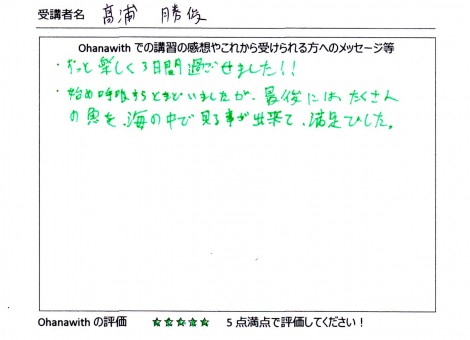 受講者名 髙浦 勝俊
Ohanawith での講習の感想やこれから受けられる方へのメッセージ等
・ずっと楽しく3日間過ごせました!!
・始め呼吸すらとまどいましたが、最後には、たくさん
の魚を、海の中で見る事が出来て、満足でした。
Ohanawith の評価 ★★★★★ 5点満点で評価してください!